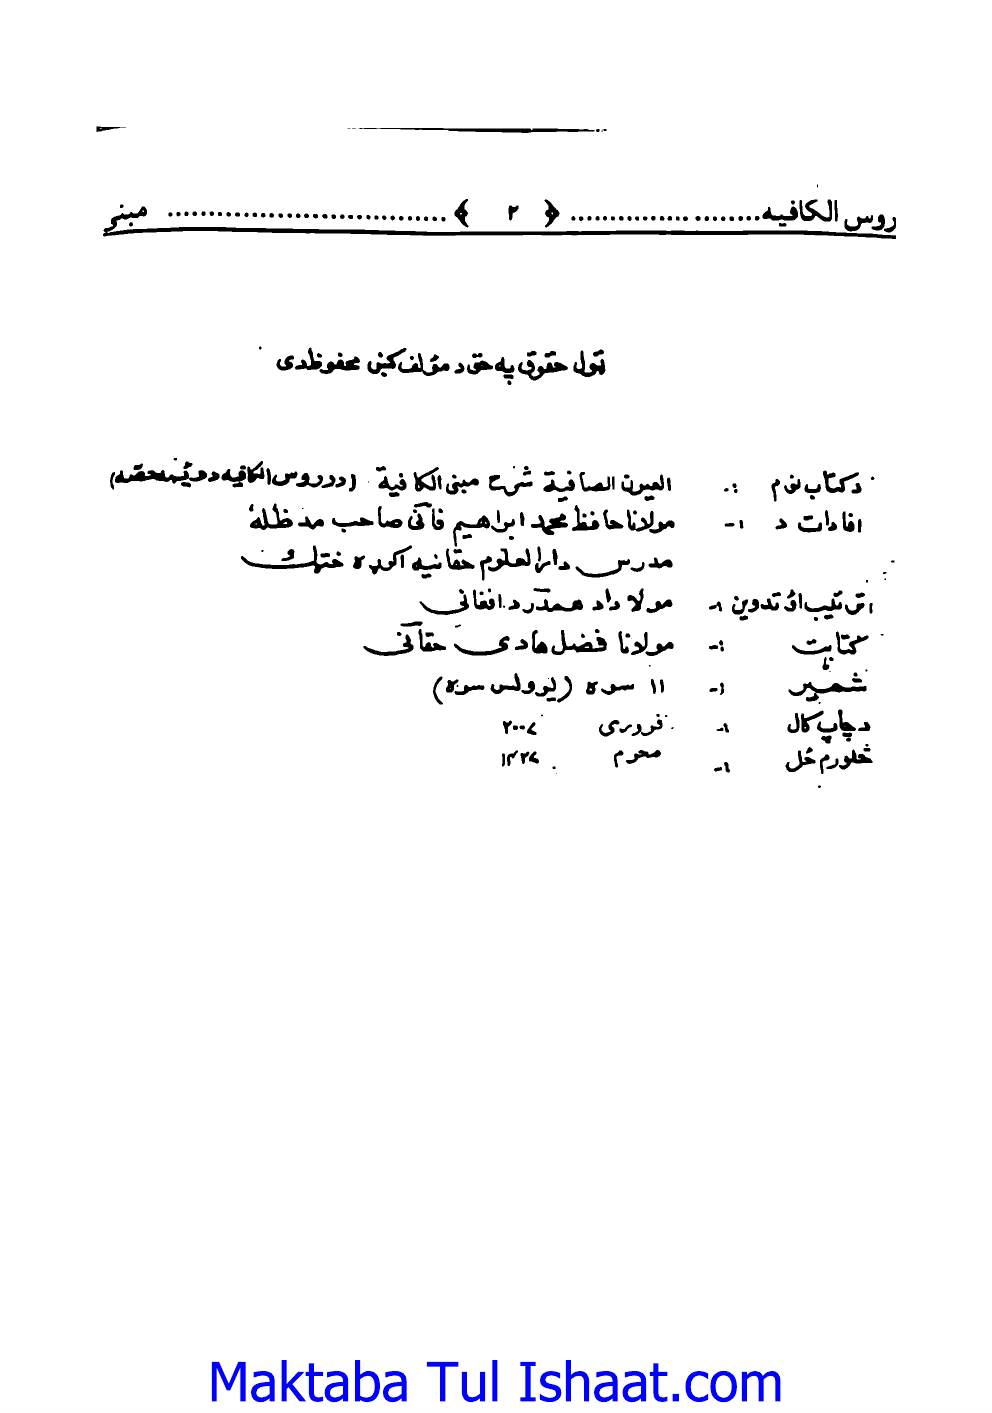 روس الكافيه ........................ ﴿ ۲ ﴾ ................................ مبنی
ټول حقوق په حق د مؤلف کښی محفوظ دی
د کتاب نوم :- العیون الصافیة شرح مبنی الکافیة (د دروس الکافیه دوئیمه حصه)
افادات د :- مولانا حافظ محمد ابراهیم فانی صاحب مدظلهٗ
مدرس دارالعلوم حقانیه اکوړه خټک
ترتیب اؤ تدوین :- مولا داد همدرد افغانی
کتابت :- مولانا فضل هادی حقانی
شمیر :- ۱۱ سوه (یوولس سوه)
د چاپ کال :- فروری ۲۰۰۷
څلورم ځل :- محرم ۱۴۲۷
Maktaba Tul Ishaat.com